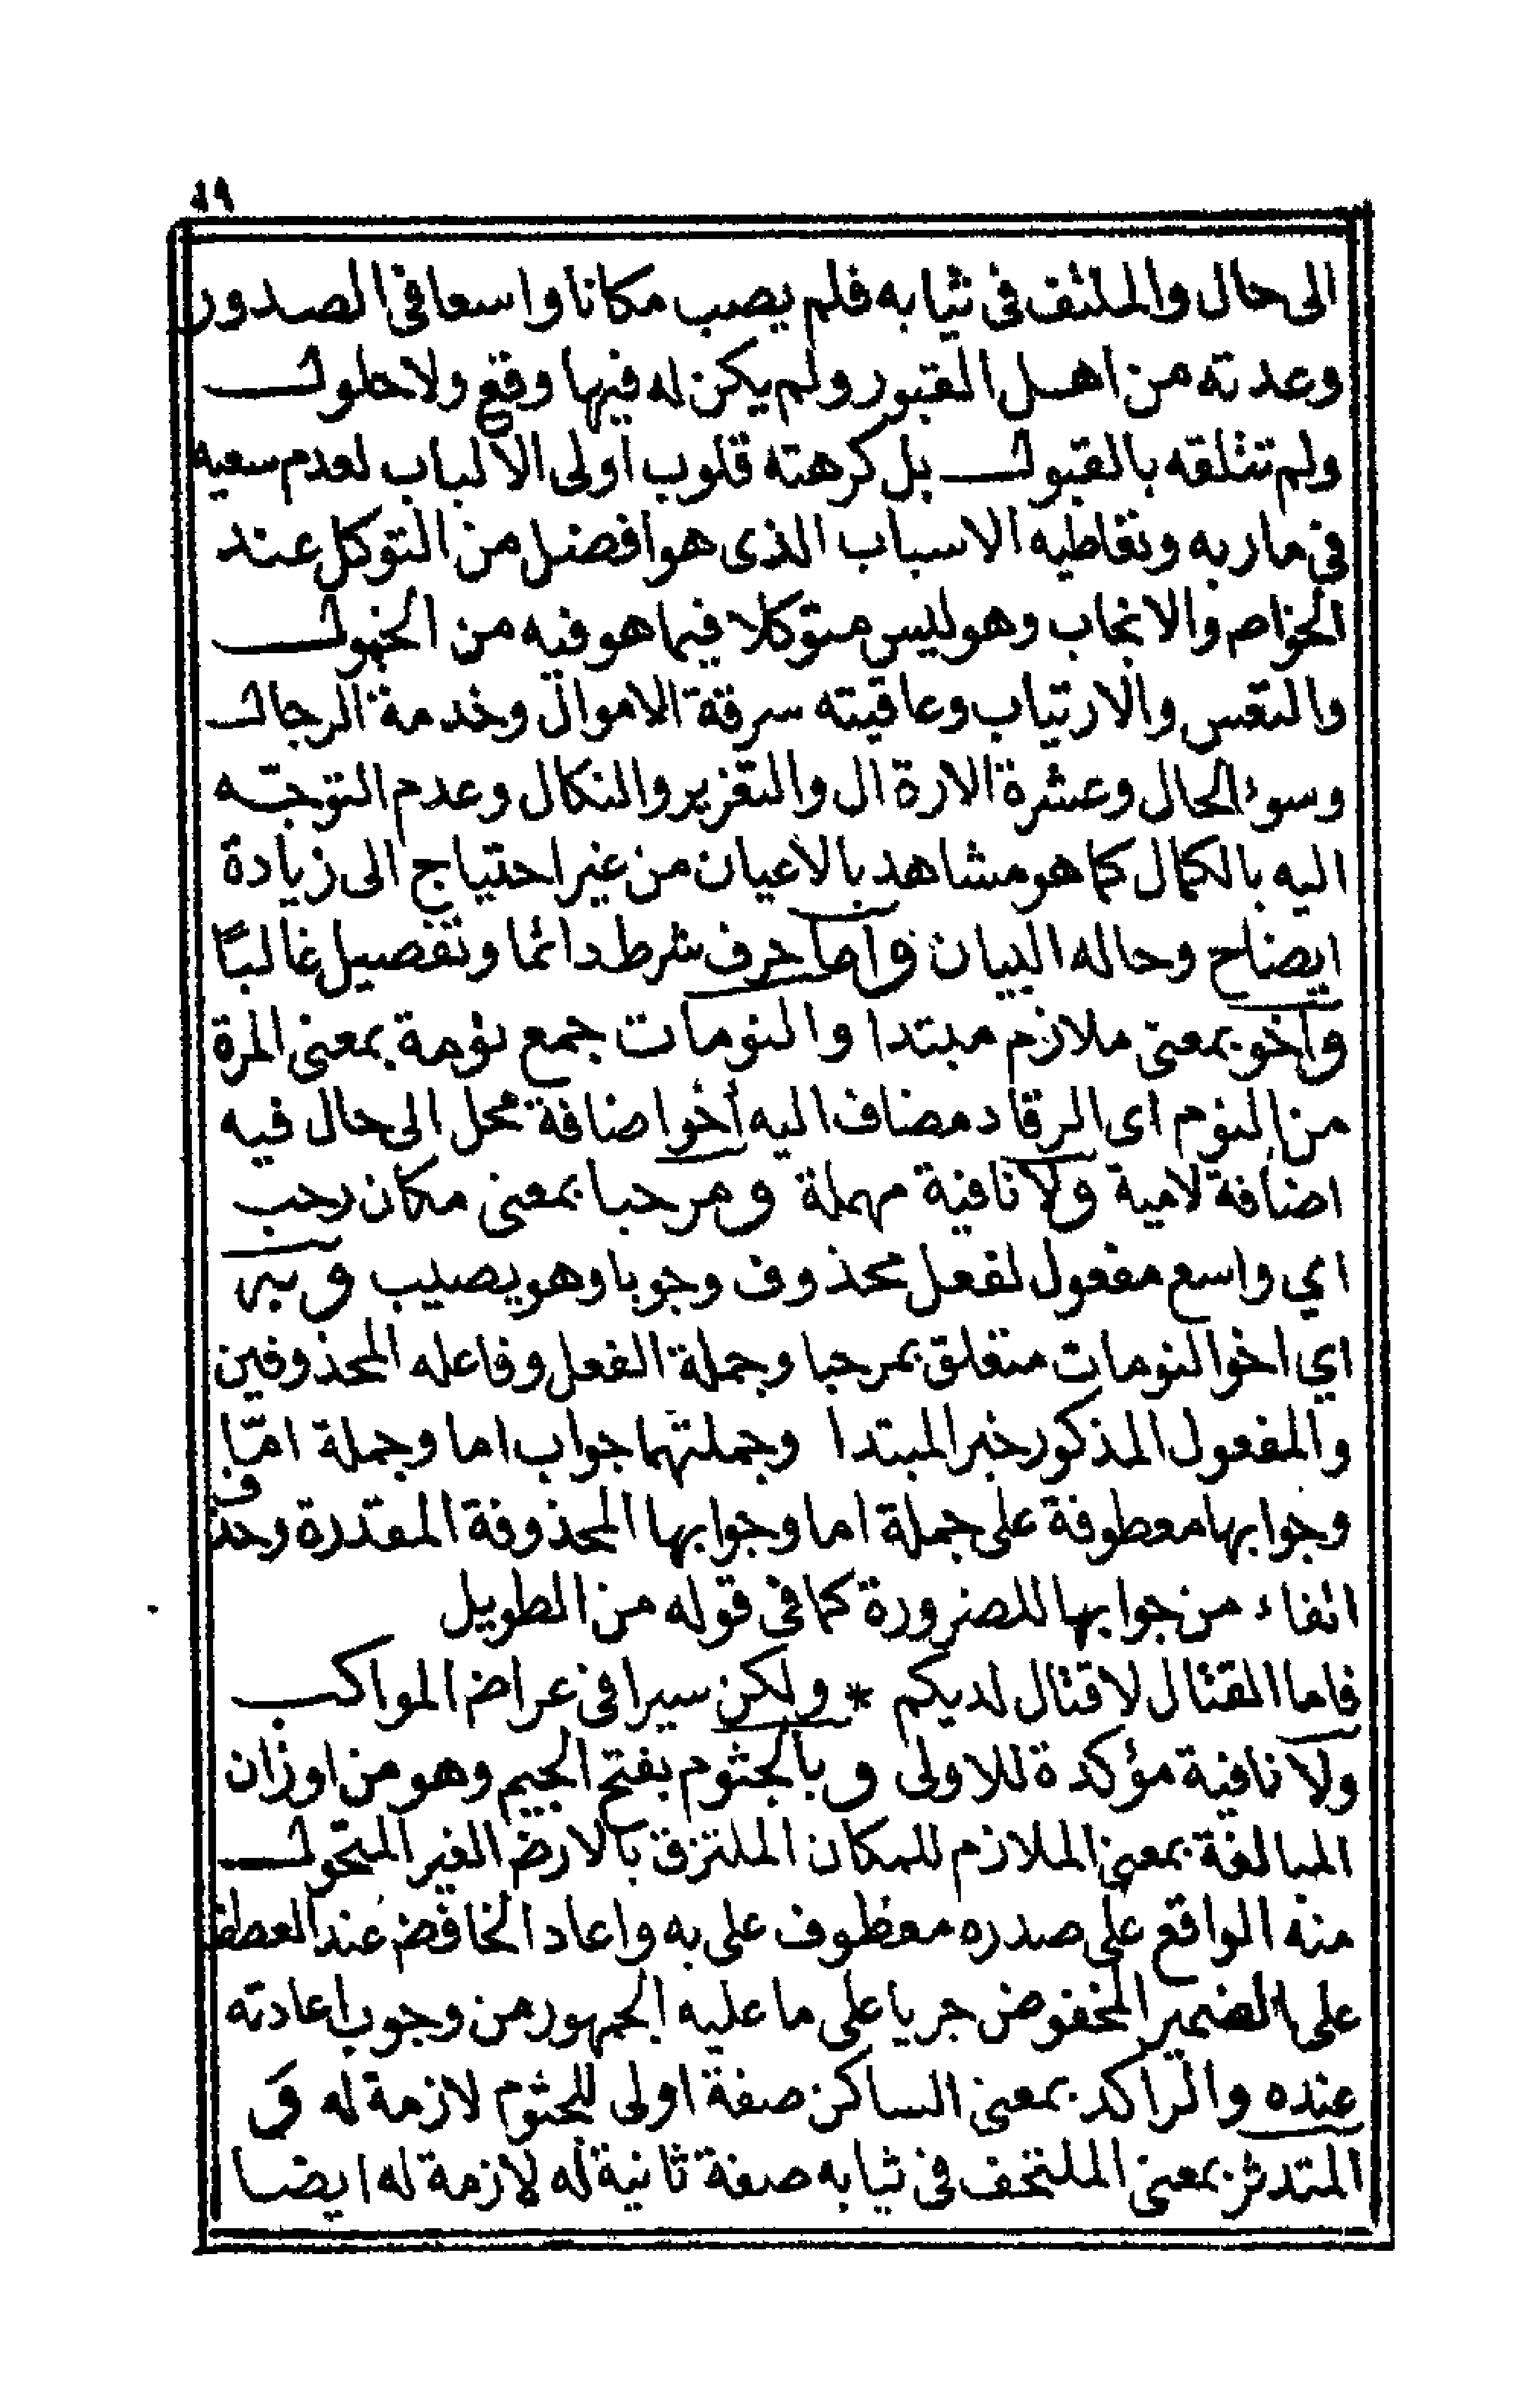 ٨٩
الى حال والملثف فى ثيابه فلم يصب مكانا واسعا فى الصدور
وعدته من اهل القبور ولم يكن له فيها وقع ولا حلول
ولم تتلقه بالقبول بل كرهته قلوب اولى الالباب لعدم سعيه
فى ماربه وتعاطيه الاسباب الذى هو افضل من التوكل عند
الخواص والانجاب وهو ليس متوكلا فيما هو فيه من الخمول
والتعس والارتياب وعاقبته سرقة الاموال وخدمة الرجال
وسوء الحال وعشرة الارذال والتعزير والنكال وعدم التوجّه
اليه بالكمال كما هو مشاهد بالاعيان من غير احتياج الى زيادة
ايضاح وحاله البيان واما حرف شرط دائما وتفصيل غالبًا
واخو بمعنى ملازم مبتدا والنومات جمع نومة بمعنى المرة
من النوم اى الرقاد مضاف اليه أخو اضافة محل الى حال فيه
اضافة لامية ولا نافية مهملة ومرحبا بمعنى مكان رحب
اي واسع مفعول لفعل محذوف وجوبا وهو يصيب وبه
اي اخو النومات متعلق بمرحبا وجملة الفعل وفاعله المحذوفين
والمفعول المذكور خبر المبتدا وجملتهما جواب اما وجملة امّا
وجوابها معطوفة على جملة اما وجوابها المحذوفة المقدرة وحذف
الفاء من جوابها للضرورة كما فى قوله من الطويل
فاما القتال لا قتال لديكم * ولكن سيرا فى عراض المواكب
ولا نافية مؤكدة للاولى وبالجثوم بفتح الجيم وهو من اوزان
المبالغة بمعنى الملازم للمكان الملتزق بالارض الغير المتحول
منه الواقع على صدره معطوف على به واعاد الخافض عند العطف
على الضمير المخفوض جريا على ما عليه الجمهور من وجوب اعادته
عنده والراكد بمعنى الساكن صفة اولى للجثوم لازمة له وَ
المتدثر بمعنى الملتحف فى ثيابه صفة ثانية له لازمة له ايضا